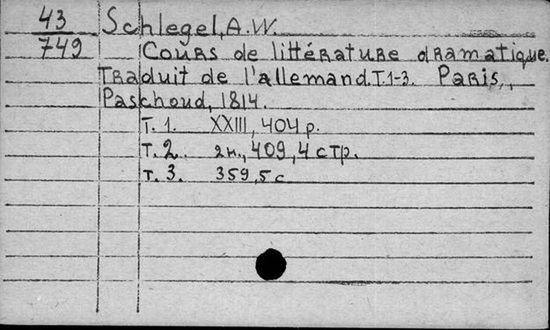 43
749
Schlegel, A.W.
Cours de littérature dramatique.
Traduit de l'allemand. T.1-3. Paris,
Paschoud, 1814.
T. 1. XXIII, 404 p.
T. 2. 2н., 409, 4 стр.
T. 3. 359, 5 с